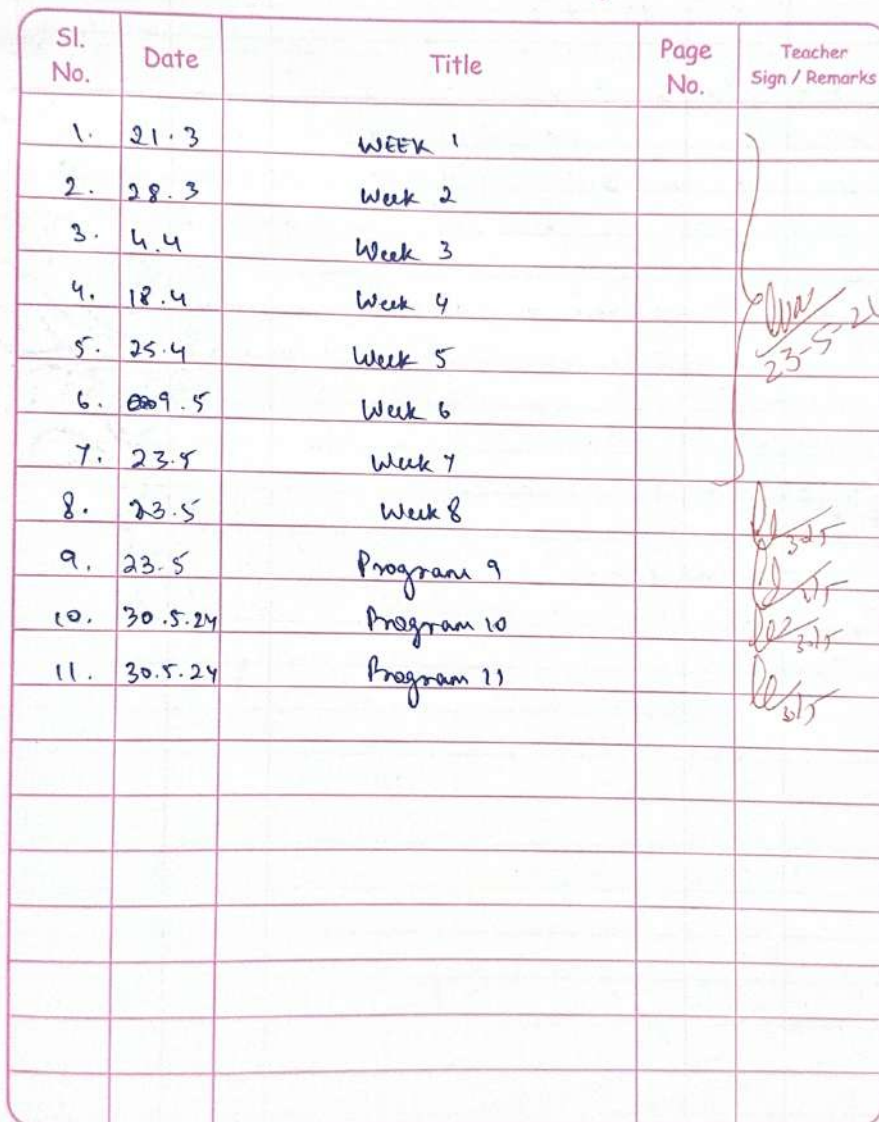 Sl. No. Date Title Page No. Teacher Sign / Remarks
1. 21.3 WEEK 1
2. 28.3 Week 2
3. 4.4 Week 3
4. 18.4 Week 4
23-5-24
5. 25.4 Week 5
6. 9.5 Week 6
7. 23.5 Week 7
8. 23.5 Week 8
30/5
9. 23.5 Program 9
10. 30.5.24 Program 10
30/5
11. 30.5.24 Program 11
30/5